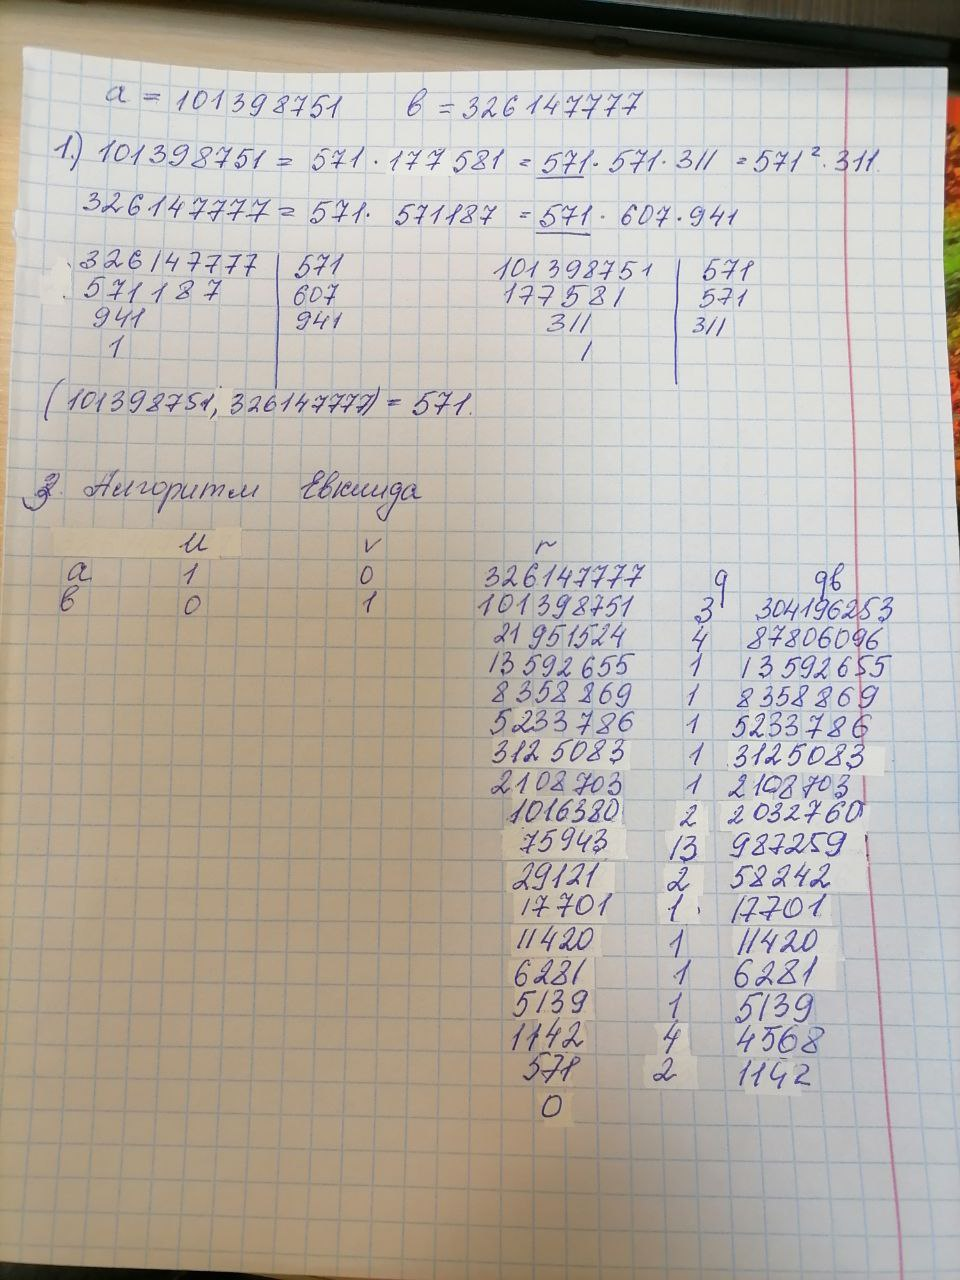 a = 101398751 в = 326147777
1.) 101398751 = 571 · 177581 = 571 · 571 · 311 = 571² · 311.
326147777 = 571 · 571187 = 571 · 607 · 941
326147777 | 571 101398751 | 571
571187 | 607 177581 | 571
941 | 941 311 | 311
1 1
(101398751, 326147777) = 571.
Алгоритм Евклида
u v r
a 1 0 326147777 q qв
в 0 1 101398751 3 304196253
21951524 4 87806096
13592655 1 13592655
8358869 1 8358869
5233786 1 5233786
3125083 1 3125083
2108703 1 2108703
1016380 2 2032760
75943 13 987259
29121 2 58242
17701 1 17701
11420 1 11420
6281 1 6281
5139 1 5139
1142 4 4568
571 2 1142
0